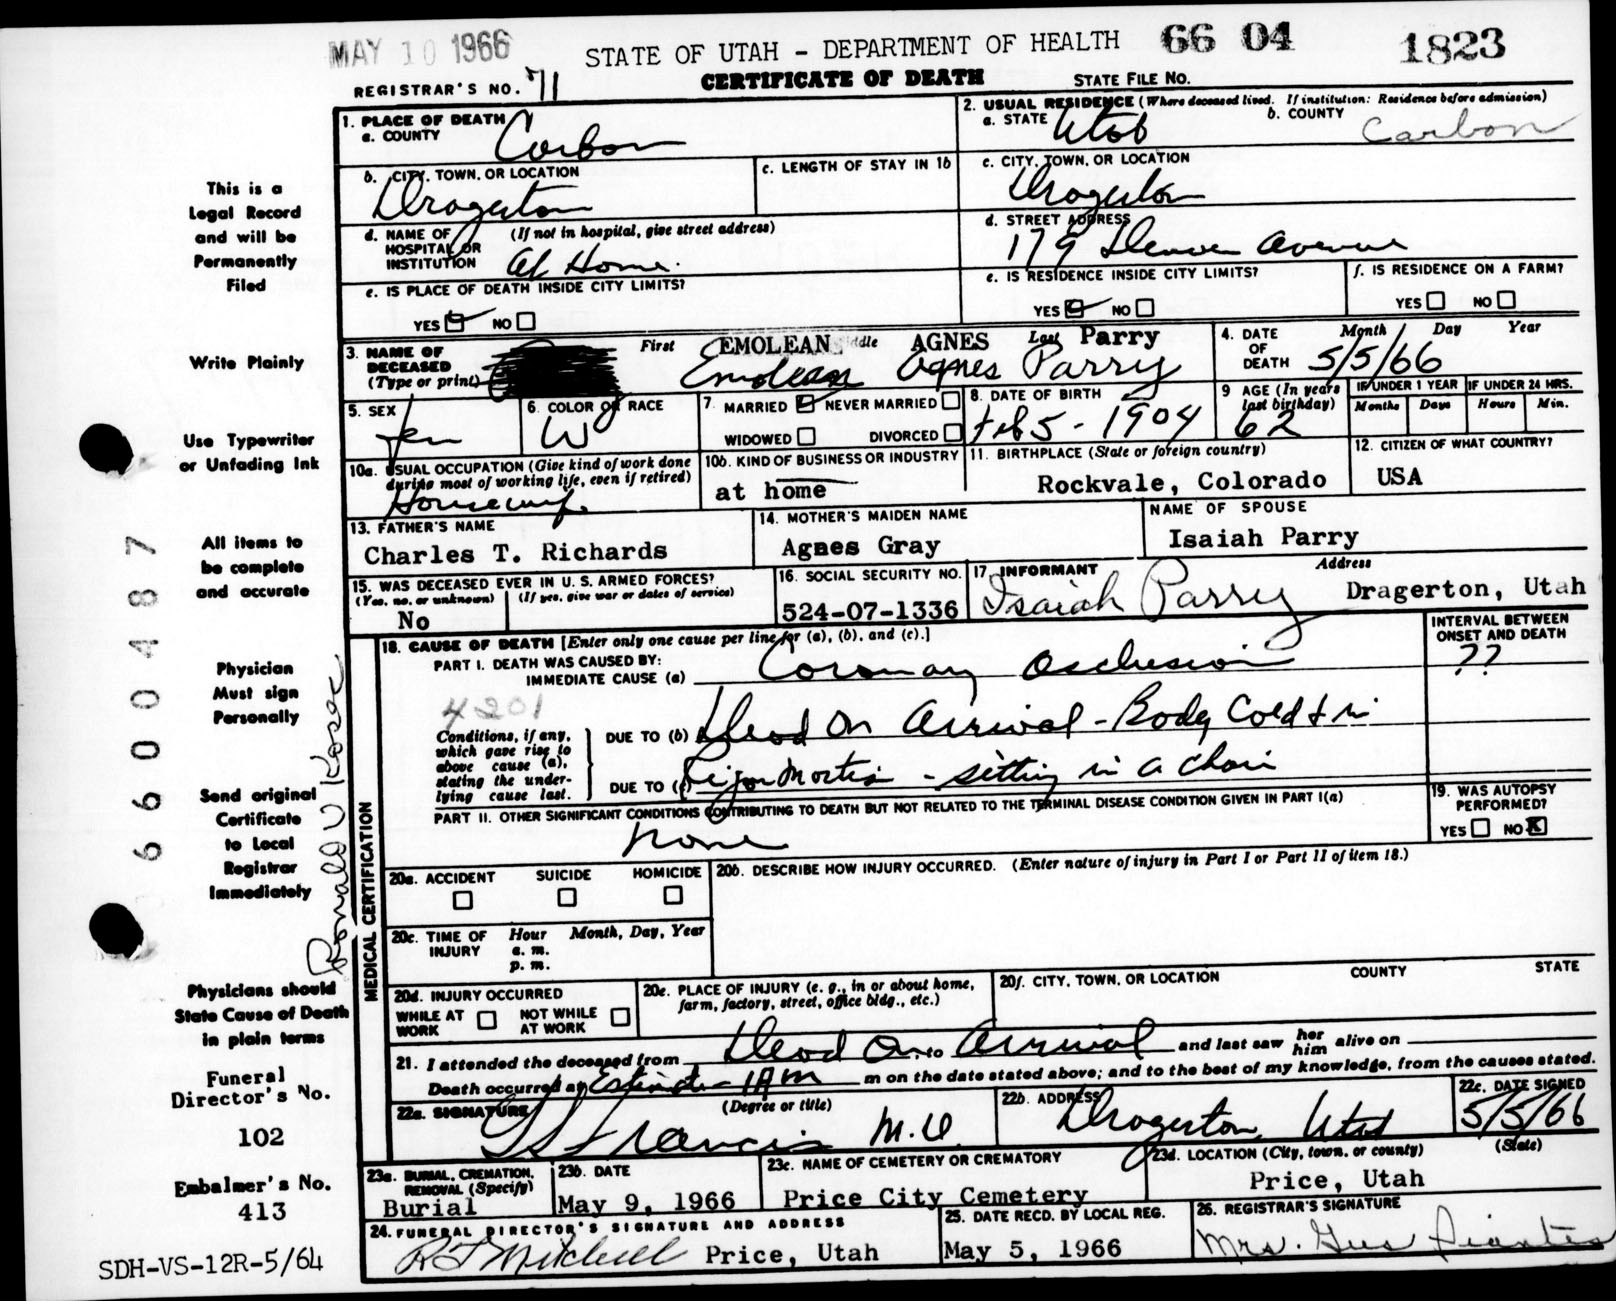 MAY 10 1966
STATE OF UTAH - DEPARTMENT OF HEALTH 66 04 1823
REGISTRAR'S NO. 71 CERTIFICATE OF DEATH STATE FILE NO.
1. PLACE OF DEATH
a. COUNTY Carbon
2. USUAL RESIDENCE (Where deceased lived. If institution: Residence before admission)
a. STATE Utah b. COUNTY Carbon
b. CITY, TOWN, OR LOCATION Dragerton
c. LENGTH OF STAY IN 1b
c. CITY, TOWN, OR LOCATION Dragerton
d. NAME OF HOSPITAL OR INSTITUTION (If not in hospital, give street address) At Home.
d. STREET ADDRESS 179 Denver Avenue
e. IS PLACE OF DEATH INSIDE CITY LIMITS?
YES NO
e. IS RESIDENCE INSIDE CITY LIMITS?
YES NO
f. IS RESIDENCE ON A FARM?
YES NO
3. NAME OF DECEASED (Type or print)
First EMOLEAN Middle AGNES Last Parry
Emolean Agnes Parry
4. DATE OF DEATH Month Day Year
5/5/66
5. SEX Fem
6. COLOR OR RACE W
7. MARRIED NEVER MARRIED
WIDOWED DIVORCED
8. DATE OF BIRTH Feb 5 - 1904
9 AGE (In years last birthday) 62
IF UNDER 1 YEAR Months Days
IF UNDER 24 HRS. Hours Min.
10a. USUAL OCCUPATION (Give kind of work done during most of working life, even if retired)
Housewife
10b. KIND OF BUSINESS OR INDUSTRY
at home
11. BIRTHPLACE (State or foreign country)
Rockvale, Colorado
12. CITIZEN OF WHAT COUNTRY?
USA
13. FATHER'S NAME
Charles T. Richards
14. MOTHER'S MAIDEN NAME
Agnes Gray
NAME OF SPOUSE
Isaiah Parry
15. WAS DECEASED EVER IN U. S. ARMED FORCES?
(Yes, no, or unknown) (If yes, give war or dates of service)
No
16. SOCIAL SECURITY NO.
524-07-1336
17. INFORMANT Address
Isaiah Parry Dragerton, Utah
18. CAUSE OF DEATH [Enter only one cause per line for (a), (b), and (c).]
PART I. DEATH WAS CAUSED BY:
IMMEDIATE CAUSE (a) Coronary Occlusion
INTERVAL BETWEEN ONSET AND DEATH
??
4201
Conditions, if any, which gave rise to above cause (a), stating the underlying cause last.
DUE TO (b) Dead On Arrival - Body Cold & in
DUE TO (c) Rigor Mortis - sitting in a chair
PART II. OTHER SIGNIFICANT CONDITIONS CONTRIBUTING TO DEATH BUT NOT RELATED TO THE TERMINAL DISEASE CONDITION GIVEN IN PART I(a)
none
19. WAS AUTOPSY PERFORMED?
YES NO X
MEDICAL CERTIFICATION
20a. ACCIDENT SUICIDE HOMICIDE
20b. DESCRIBE HOW INJURY OCCURRED. (Enter nature of injury in Part I or Part II of item 18.)
20c. TIME OF INJURY Hour Month, Day, Year
a. m.
p. m.
20d. INJURY OCCURRED
WHILE AT WORK NOT WHILE AT WORK
20e. PLACE OF INJURY (e. g., in or about home, farm, factory, street, office bldg., etc.)
20f. CITY, TOWN, OR LOCATION COUNTY STATE
21. I attended the deceased from Dead On to Arrival and last saw her him alive on
Death occurred at 1 AM m on the date stated above; and to the best of my knowledge, from the causes stated.
22a. SIGNATURE (Degree or title)
Francis M.D.
22b. ADDRESS
Dragerton Utah
22c. DATE SIGNED
5/5/66
23a. BURIAL, CREMATION, REMOVAL (Specify)
Burial
23b. DATE
May 9, 1966
23c. NAME OF CEMETERY OR CREMATORY
Price City Cemetery
23d. LOCATION (City, town, or county) (State)
Price, Utah
24. FUNERAL DIRECTOR'S SIGNATURE AND ADDRESS
Mitchell Price, Utah
25. DATE RECD. BY LOCAL REG.
May 5, 1966
26. REGISTRAR'S SIGNATURE
Mrs. Gus
This is a
Legal Record
and will be
Permanently
Filed
Write Plainly
Use Typewriter
or Unfading Ink
All items to
be complete
and accurate
Physician
Must sign
Personally
Send original
Certificate
to Local
Registrar
Immediately
Physicians should
State Cause of Death
in plain terms
Funeral
Director's No.
102
Embalmer's No.
413
SDH-VS-12R-5/64
6600487
Ronald V Kosec